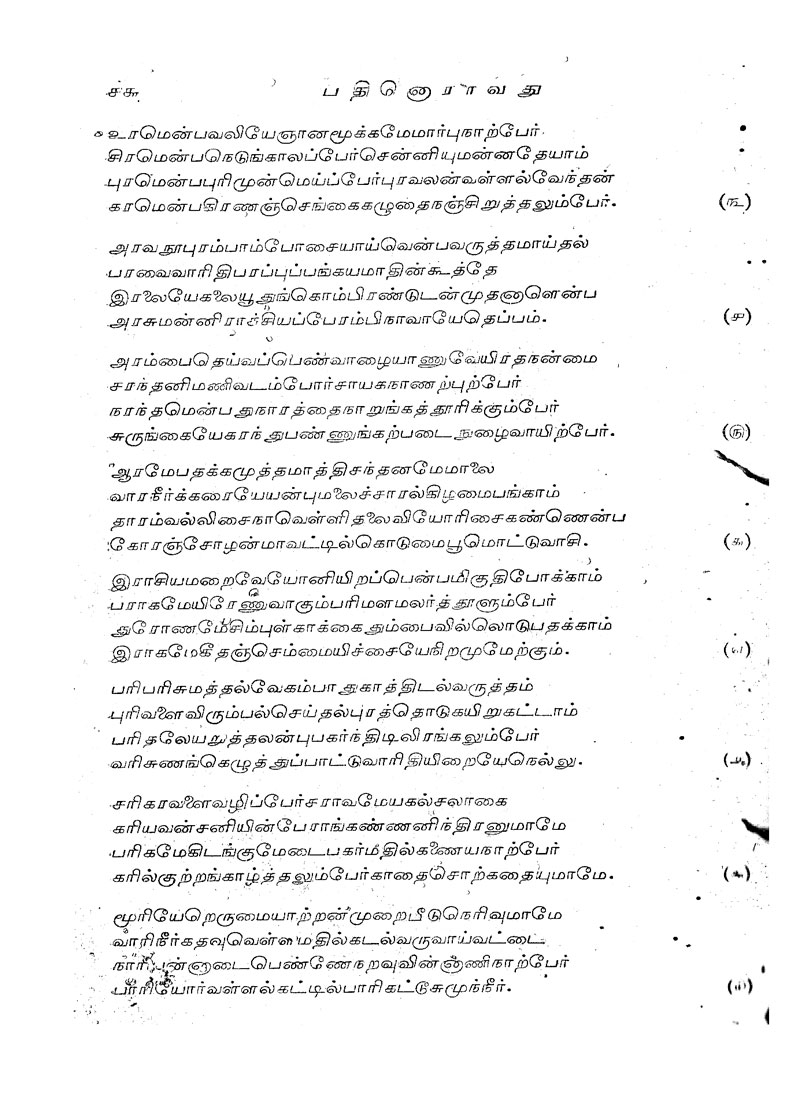 ௬௬ பதினொராவது
உரமென்பவலியேஞானமூக்கமேமார்புநாற்பேர்
சிரமென்பநெடுங்காலப்பேர்சென்னியுமன்னதேயாம்
புரமென்பபுரிமுன்மெய்ப்பேர்புரவலன்வள்ளல்வேந்தன்
கரமென்பகிரணஞ்செங்கைகழுதைநஞ்சிறுத்தலும்பேர். (௩)
அரவநூபுரம்பாம்போசையாய்வென்பவருத்தமாய்தல்
பரவைவாரிதிபரப்புப்பங்கயமாதின்கூத்தே
இரலையேகலையூதுங்கொம்பிரண்டுடன்முதனாளென்ப
அரசுமன்னிராச்சியப்பேரம்பிநாவாயேதெப்பம். (௪)
அரம்பைதெய்வப்பெண்வாழையாணுவேயிரதநன்மை
சரந்தனிமணிவடம்போர்சாயகநாணற்புற்பேர்
நரந்தமென்பதுநாரத்தைநாறுங்கத்தூரிக்கும்பேர்
சுருங்கையேகரந்துபண்ணுங்கற்படைநுழைவாயிற்பேர். (௫)
ஆரமேபதக்கமுத்தமாத்திசந்தனமேமாலை
வாரநீர்க்கரையேயன்புமலைச்சாரல்கிழமைபங்காம்
தாரம்வல்லிசைநாவெள்ளிதலைவியோரிசைகண்ணென்ப
கோரஞ்சோழன்மாவட்டில்கொடுமைபூமொட்டுவாசி. (௬)
இராசியமறைவேயோனியிறப்பென்பமிகுதிபோக்காம்
பராகமேயிரேணுவாகும்பரிமளமலர்த்தூளும்பேர்
துரோணமேசிம்புள்காக்கைதும்பைவில்லொடுபதக்காம்
இராகமேகீதஞ்செம்மையிச்சையேநிறமுமேற்கும். (௭)
பரிபரிசுமத்தல்வேகம்பாதுகாத்திடல்வருத்தம்
புரிவளைவிரும்பல்செய்தல்புரத்தொடுகயிறுகட்டாம்
பரிதலேயறுத்தலன்புபகர்ந்திடிலிரங்கலும்பேர்
வரிசுணங்கெழுத்துப்பாட்டுவாரிதியிறையேநெல்லு. (௮)
சரிகரவளைவழிப்பேர்சராவமேயகல்சலாகை
கரியவன்சனியின்பேராங்கண்ணனிந்திரனுமாமே
பரிகமேகிடங்குமேடைபகர்மீதில்கணையநாற்பேர்
கரில்குற்றங்காழ்த்தலும்பேர்காதைசொற்கதையுமாமே. (௯)
மூரியேறெருமையாற்றன்முறைபீடுநெரிவுமாமே
வாரிநீர்கதவுவெள்ளமதில்கடல்வருவாய்வட்டை
நாரிபன்னாடைபெண்ணேநறவுவின்ஞாணிநாற்பேர்
பாரியோர்வள்ளல்கட்டில்பாரிகட்டூசுமுந்நீர். (௰)